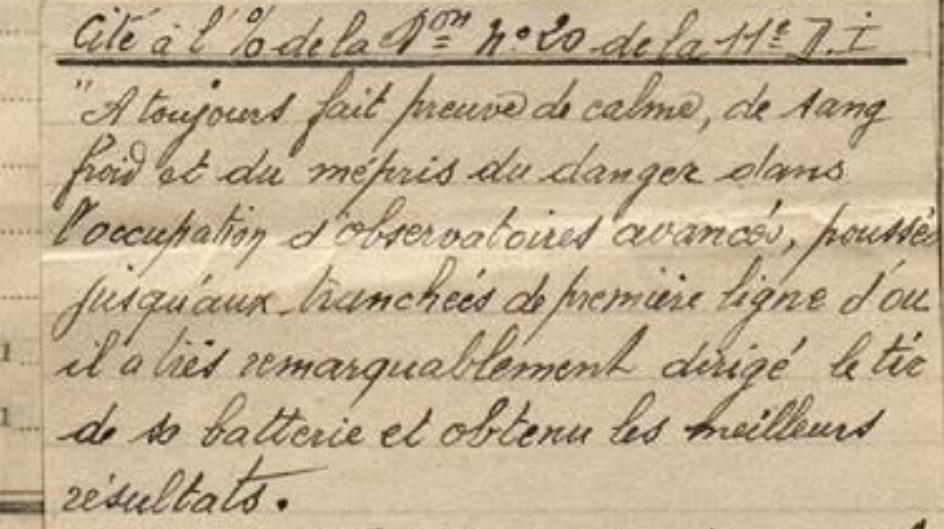 Cité à l'% de la Don n° 20 de la 11e D.I
"A toujours fait preuve de calme, de sang
froid et du mépris du danger dans
l'occupation d'observatoires avancés, poussés
jusqu'aux tranchées de première ligne d'ou
il a très remarquablement dirigé le tir
de sa batterie et obtenu les meilleurs
résultats.
1
1